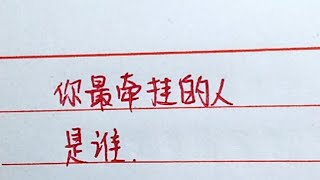 你最牵挂的人
是谁.